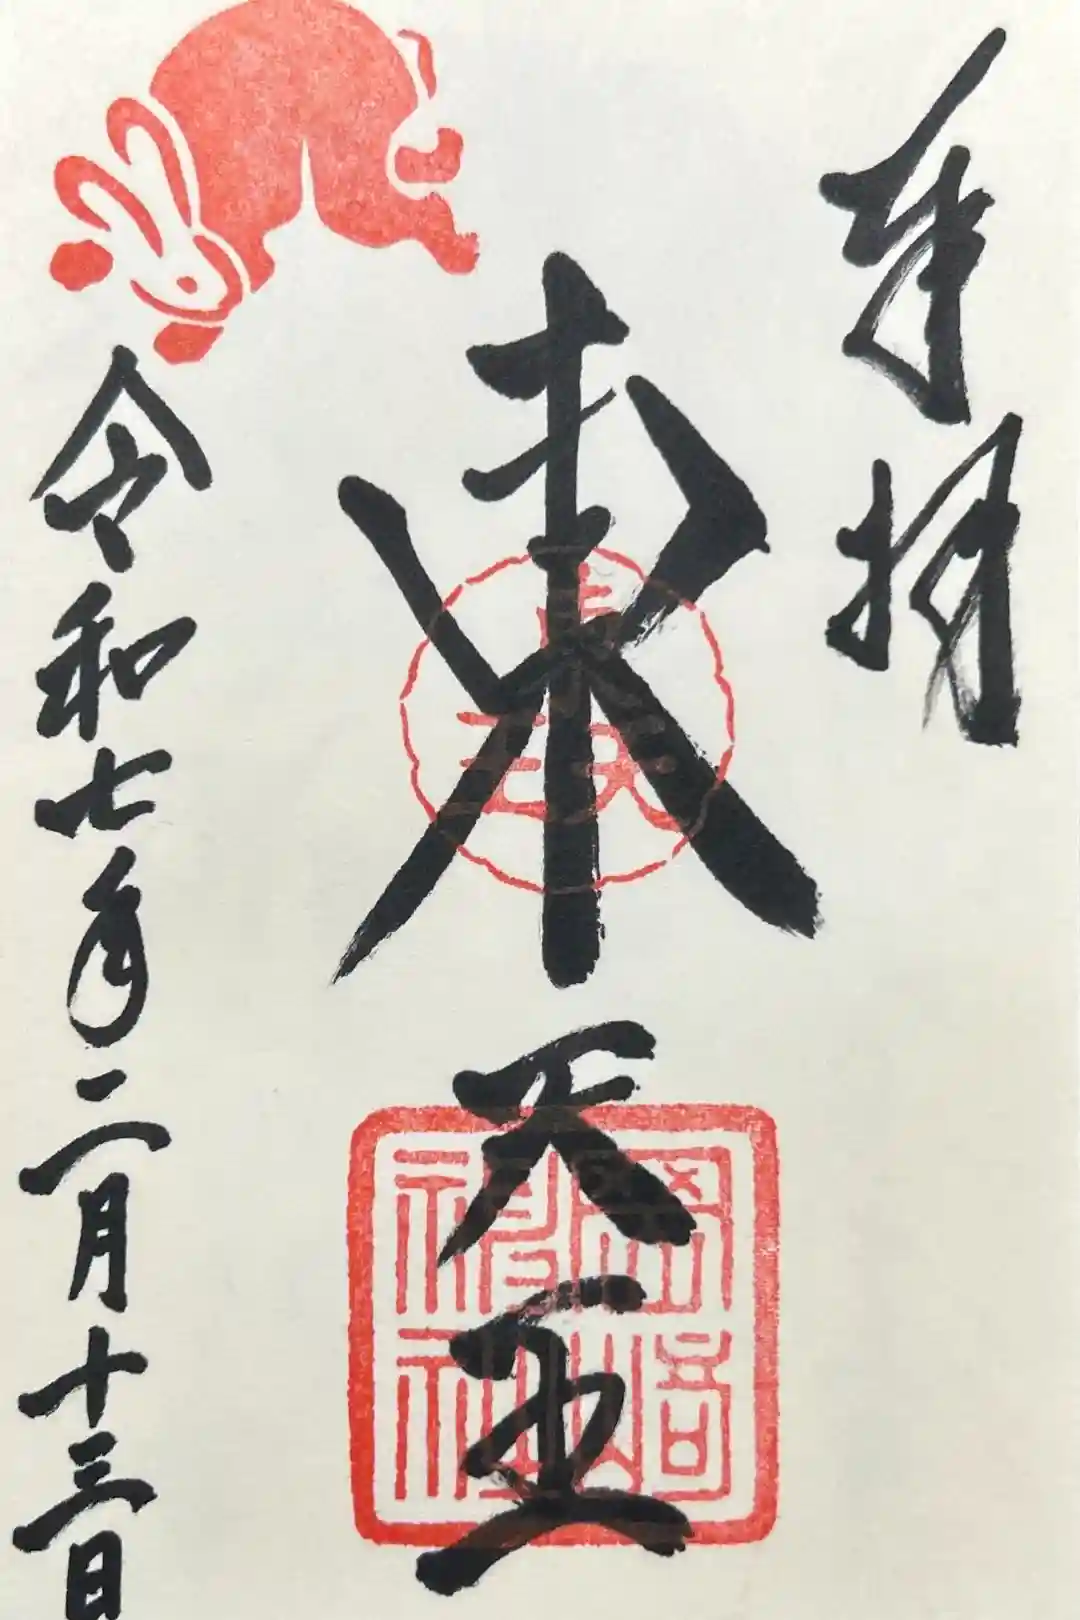 奉拝
東天王
令和七年二月十三日
東天王
岡崎神社